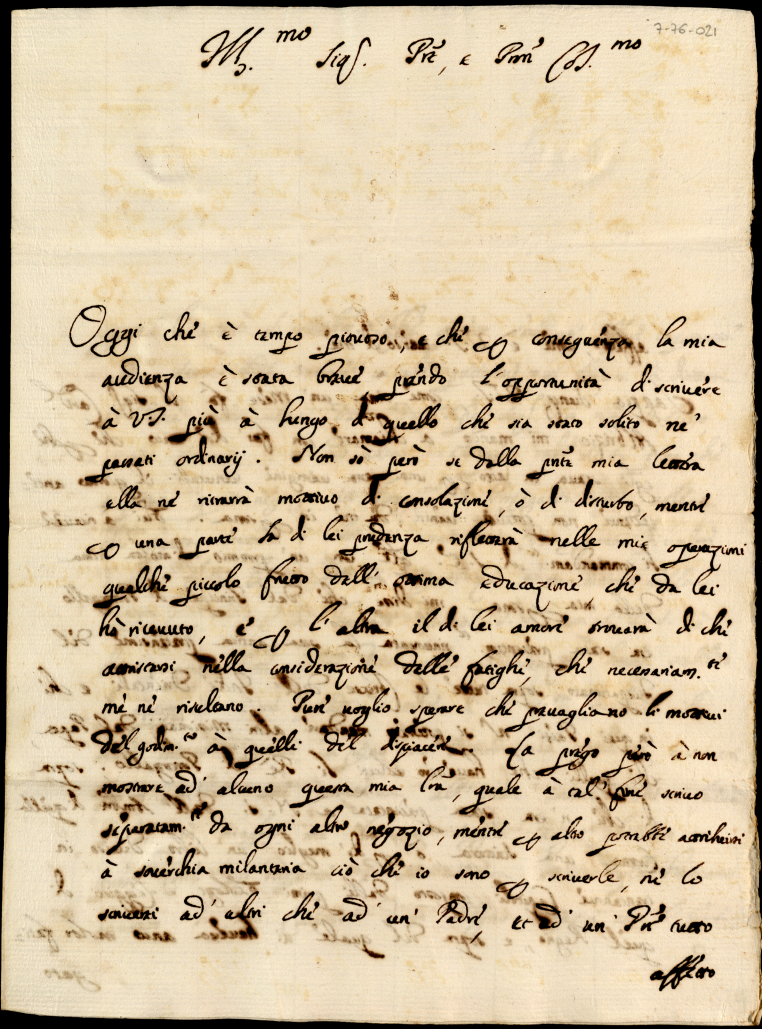 7-76-021
Ill.mo Sig.r Pre, e Pron Col.mo
Oggi che è tempo piovoso, e che p conseguenza la mia
audienza è stata breve prendo l'opportunità di scrivere
à VS. più à lungo di quello che sia stato solito ne'
passati ordinarij. Non sò però se dalla pnte mia lettera
ella ne ritrarrà mottivo di consolazione, ò di disturbo, mentre
p una parte la di lei prudenza rifletterà nelle mie operazioni
qualche piccolo frutto dell' ottima educazione, che da lei
hò ricevuto, e p l'altra il di lei amore trovarà di che
attristarsi nella considerazione delle fatighe, che necessariam.te
mè ne risultano. Pure voglio sperare che prevagliano li mottivi
del godim.to à quelli del dispiacere. La prego però à non
mostrare ad' alcuno questa mia lra, quale à tal' fine scrivo
separatam.te da ogni altro negozio, mentre p altro potrebbe attribuirsi
à soverchia milanteria ciò che io sono p scriverle, ne lo
scriverei ad' altri che ad' un' Padre, et ad' un' Pre tutto
affetto